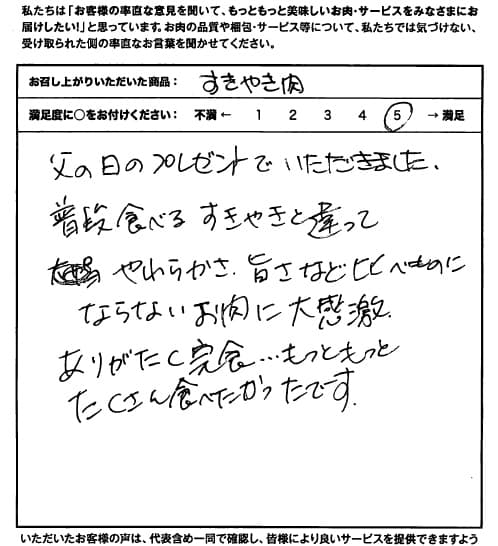 私たちは「お客様の率直な意見を聞いて、もっともっと美味しいお肉・サービスをみなさまにお
届けしたい!」と思っています。お肉の品質や梱包・サービス等について、私たちでは気づけない、
受け取られた側の率直なお言葉を聞かせてください。
お召し上がりいただいた商品： すきやき肉
満足度に○をお付けください： 不満 ← 1 2 3 4 5 → 満足
父の日のプレゼントでいただきました。
普段食べるすきやきと違って
やわらかさ、旨さなど比べものに
ならないお肉に大感激。
ありがたく完食…もっともっと
たくさん食べたかったでーす。
いただいたお客様の声は、代表含め一同で確認し、皆様により良いサービスを提供できますよう